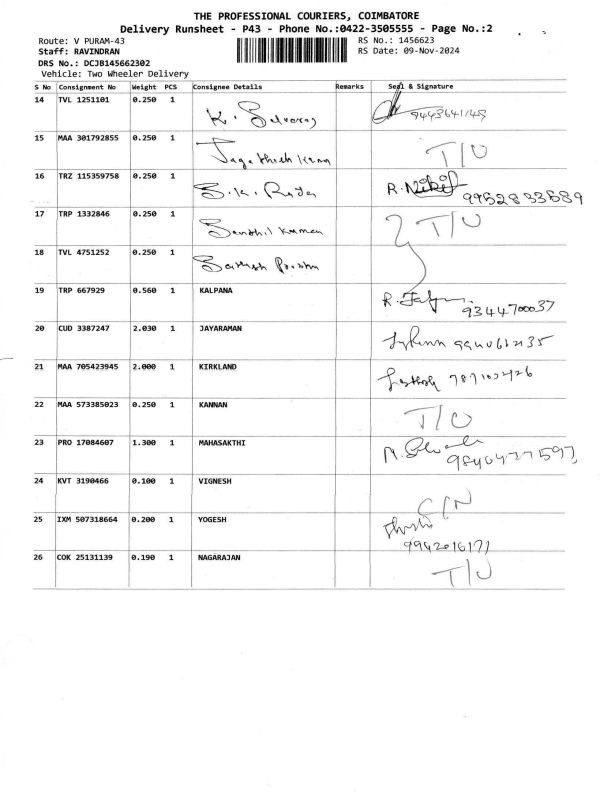 THE PROFESSIONAL COURIERS, COIMBATORE
Delivery Runsheet - P43 - Phone No.:0422-3505555 - Page No.:2
Route: V PURAM-43
RS No.: 1456623
Staff: RAVINDRAN
RS Date: 09-Nov-2024
DRS No.: DCJB145662302
Vehicle: Two Wheeler Delivery
S No Consignment No Weight PCS Consignee Details Remarks Seal & Signature
14 TVL 1251101 0.250 1 K. Selvaraj
15 MAA 301792855 0.250 1 T/O
16 TRZ 115359758 0.250 1 S.K. Raja R.
9952833589
17 TRP 1332846 0.250 1 Senthil Kumar T/O
18 TVL 4751252 0.250 1
19 TRP 667929 0.560 1 KALPANA R.
9344700037
20 CUD 3387247 2.030 1 JAYARAMAN
21 MAA 705423945 2.000 1 KIRKLAND
22 MAA 573385023 0.250 1 KANNAN T/O
23 PRO 17084607 1.300 1 MAHASAKTHI M.
24 KVT 3190466 0.100 1 VIGNESH C/N
25 IXM 507318664 0.200 1 YOGESH
26 COK 25131139 0.190 1 NAGARAJAN T/O